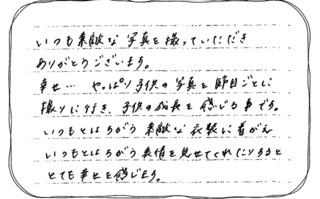 いつも素敵な写真を撮っていただき
ありがとうございます。
幸せ… やっぱり子供の写真を節目ごとに
撮りに行き、子供の成長を感じる事です。
いつもとはちがう素敵な衣装に着がえ
いつもとはちがう表情を見せてくれたりすると
とても幸せを感じます。